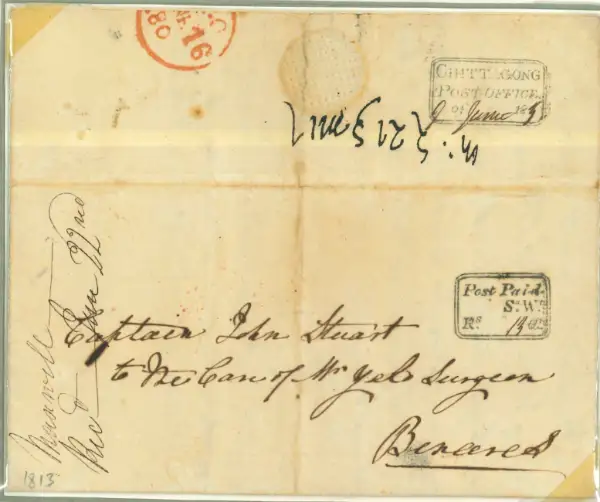 16
CHITTAGONG
POST OFFICE
9 June
Post Paid
S.W.
Rs. 13 As.
Captain John Stuart
to the Care of Mr Yeld Surgeon
Benares
Maxwell
Recd June 22nd
1813